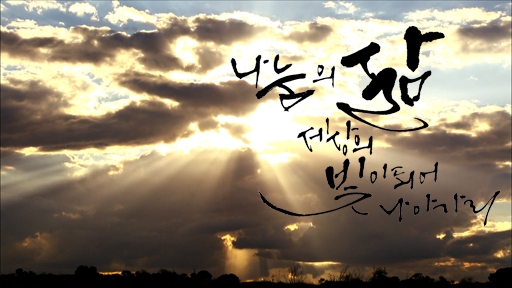 나눔의 삶
세상의
빛이되어
나아가리